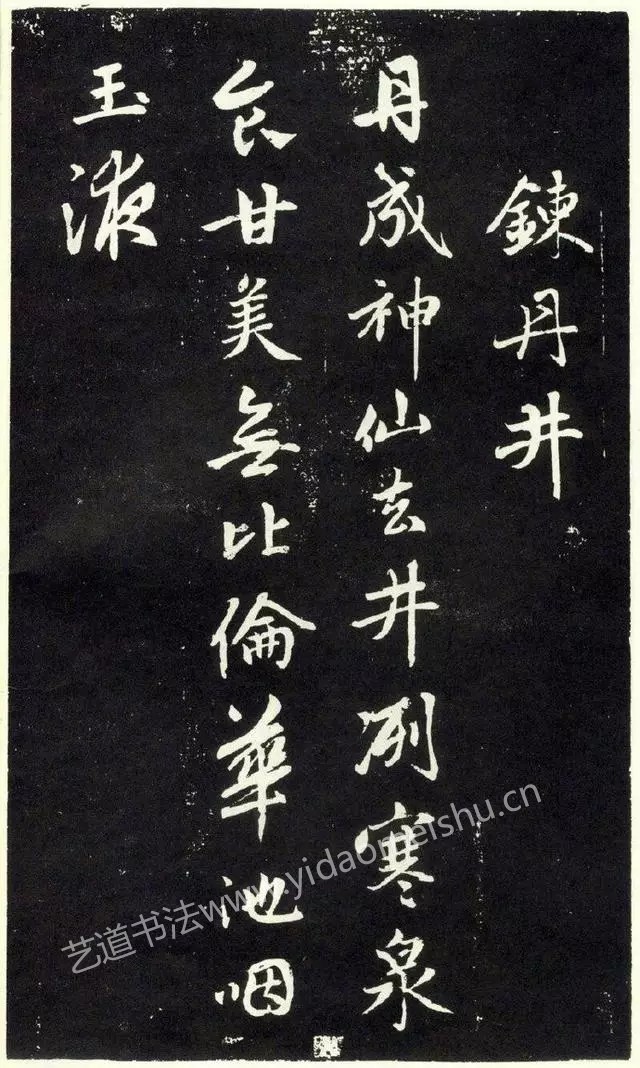 鍊丹井
丹成神仙去井冽寒泉
食甘美無比倫華池咽
玉液
艺道书法www.yidaomeishu.cn